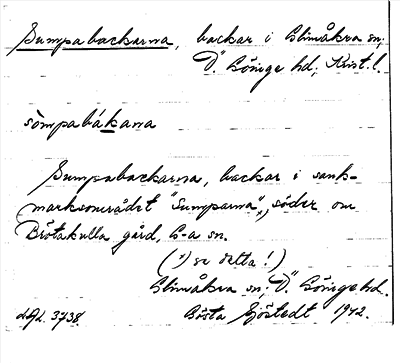 Sumpabackarna, backar i Glimåkra sn;
"Ö." Göinge hd; Krist. l.
sòmpabákana
Sumpabackarna, backar i sank-
marksområdet "Sumparna"), söder om
Brötakulla gård, G-a sn.
(*) se detta!)
Glimåkra sn; "Ö." Göinge hd.
LAL. 3738. Gösta Sjöstedt 1942.